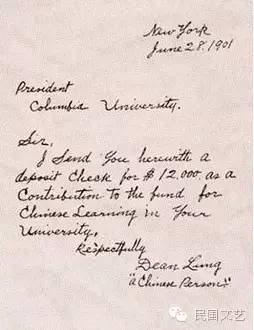 New York
June 28. 1901
President
Columbia University.
Sir,
I Send You herewith a
deposit Check for $12,000. as a
Contribution to the fund for
Chinese Learning in Your
University.
Respectfully
Dean Lung
"a Chinese Person"
民国文艺